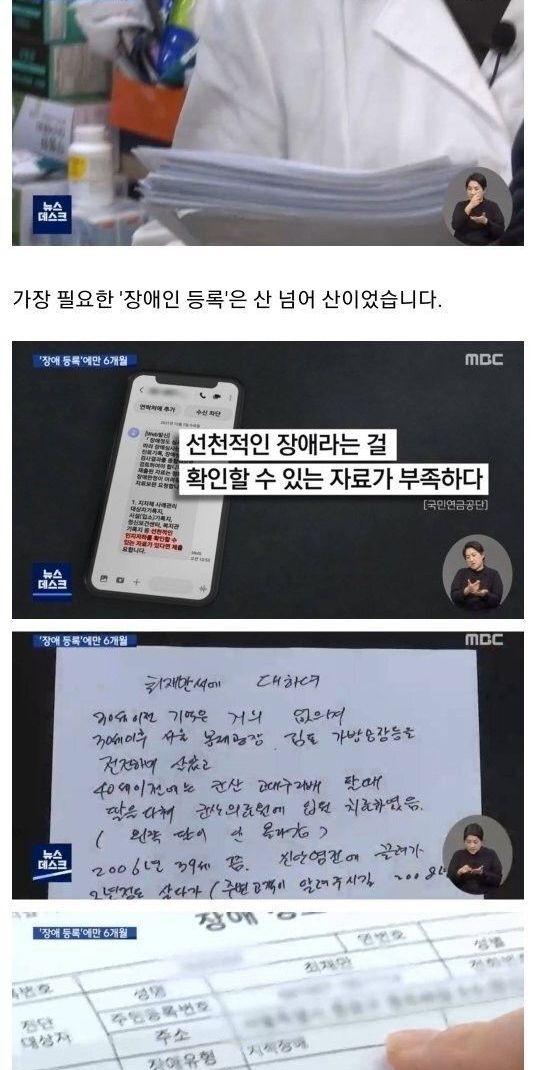 뉴스
데스크
가장 필요한 '장애인 등록'은 산 넘어 산이었습니다.
'장애 등록'에만 6개월
MBC
연락처에 추가
수신 차단
[Web발신]
선천적인 장애라는 걸
확인할 수 있는 자료가 부족하다
[국민연금공단]
1. 지자체 사례관리
대상자기록지,
시설(입소)기록지,
정신보건센터, 복지관
기록지 등 선천적인
인지저하를 확인할 수
있는 자료가 있다면 제출
요합니다.
뉴스
데스크
'장애 등록'에만 6개월
MBC
최재만씨에 대하여
30세이전 기억은 거의 없으며
30세이후 서울 봉제공장, 김포 가방공장등을
전전하며 살았고
40세이전에는 군산 고대구리배 탈때
팔을 다쳐 군산의료원에 입원 치료하였음.
( 왼쪽 팔이 안 올라감 )
2006년 39세 쯤. 진안염전에 끌려가
2년정도 살다가 ( 주변고객이 알려주시길 2008년
뉴스
데스크
'장애 등록'에만 6개월
장애
번호
성명
최재만
연번호
성별
진단
대상자
주민등록번호
전화번호
주소
장애유형
지적장애